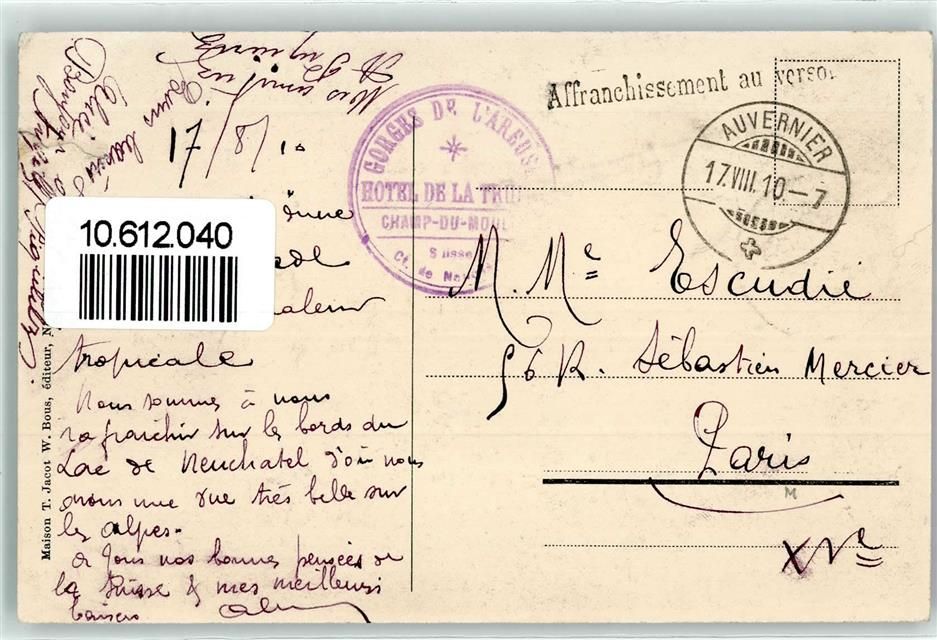 Affranchissement au verso.
AUVERNIER
17.VIII.10–7
GORGES DE L'AREUSE
HOTEL DE LA TRUI
CHAMP-DU-MOUL
Suisse
Ct. de Neu
M. Me Escudié
56 R. Sébastien Mercier
Paris
XVe
M
10.612.040
17/8/10
Nos amitiés
aleur
tropicale
Nous sommes à nous
rafraichir sur les bords du
Lac de Neuchatel d'où nous
avons une vue très belle sur
les alpes.
à tous nos bonnes pensées de
la Suisse & mes meilleurs
baisers
Maison T. Jacot W. Bous, éditeur, N